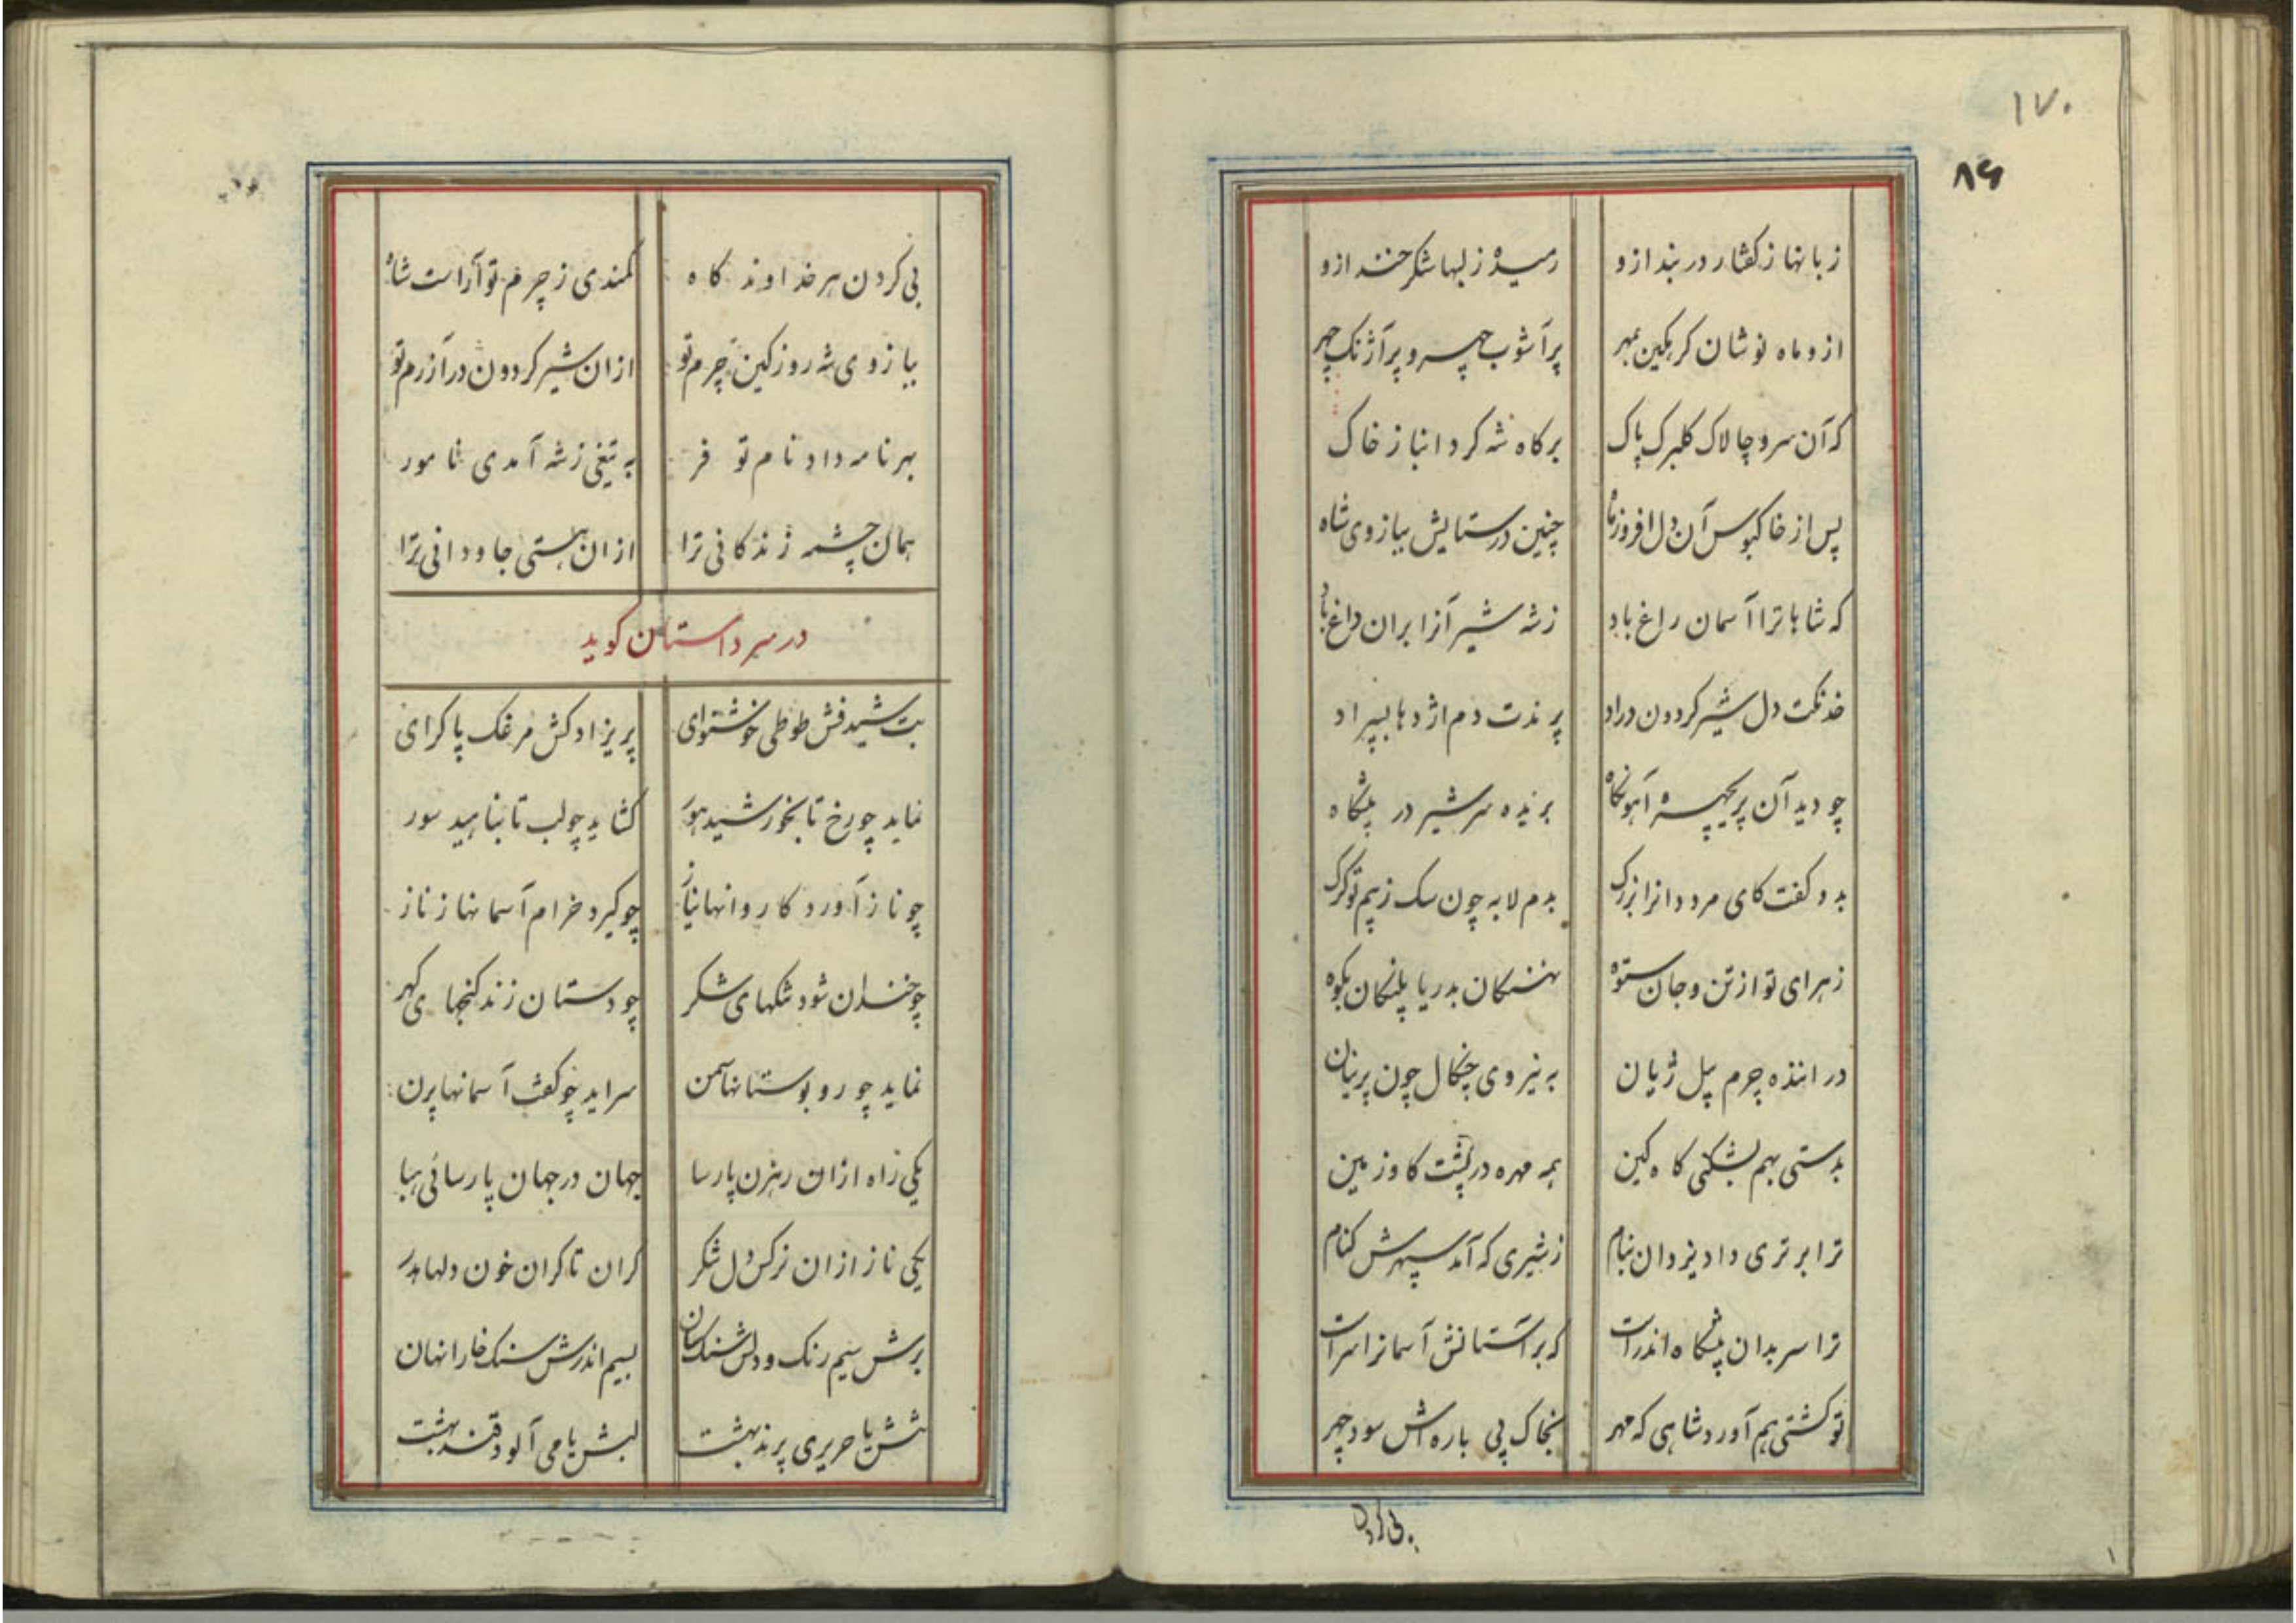 ۱۷۰
۸۶
زبانها ز کفتار در بند ازو رمیده ز لبها شکر خند ازو
ازو ماه نوشان کر بکین بمهر پرآشوب چهر و پرآژنک چهر
که آن سرو چالاک کلبرک پاک برکاه شه کرد انباز خاک
پس از خاکبوس آن دل افروز ماه چنین در ستایش ببازوی شاه
که شاها ترا آسمان راغ باد ز شه شیر آزا بران داغ باد
خدنکت دل شیر کردون دراد پرندت دم اژدها بسپراد
چو دید آن پریچهره آهو نکاه بریده سر شیر در پیشکاه
بدو کفت کای مرد دانرا بزرک بدم لابه چون سک ز بیم تو کرک
ز هرای تو از تن و جان ستوه نهنکان بدریا پلنکان بکوه
درانده چرم پیل ژیان به نیروی چنکال چون پرنیان
بدستی بهم بشکنی کاه کین همه مهره در پشت کاو زمین
ترا برتری داد یزدان بنام ز شیری که آمد سپهرش کنام
ترا سر بدان پیشکاه اندرست که بر آستانش آسمانرا سرست
تو کشتی بهم آورد شاهی که مهر بخاک پی باره اش سود چهر
بی کردن
بی کردن هر خداوند کاه کمندی ز چرم تو آراست شاه
ببازوی شه روز کین چرم تو ازان شیر کردون در آزرم تو
بهر نامه داد نام تو فر به تیغی ز شه آمدی نامور
همان چشمه زندکانی ترا ازان هستی جاودانی ترا
در سر داستان کوید
بت شید فش طوطی خوشنوای پریزاد کش مرغک پاکرای
نماید چو رخ تا بخورشید هور کشاید چو لب تا بناهید سور
چو ناز آورد کاروانها نیاز چو کیرد خرام آسمانها ز ناز
چو خندان شود تنکهای شکر چو دستان زند کنجهای کهر
نماید چو رو بوستانها سمن سراید چو کفت آسمانها پرن
یکی راه ازان رهزن پارسا جهان در جهان پارسائی هبا
یکی ناز ازان نرکس دل شکر کران تا کران خون دلها هدر
برش سیم رنک و دلش سنک سان بسیم اندرش سنک خارا نهان
تنش یا حریری پرند بهشت لبش یا می آلود قند بهشت